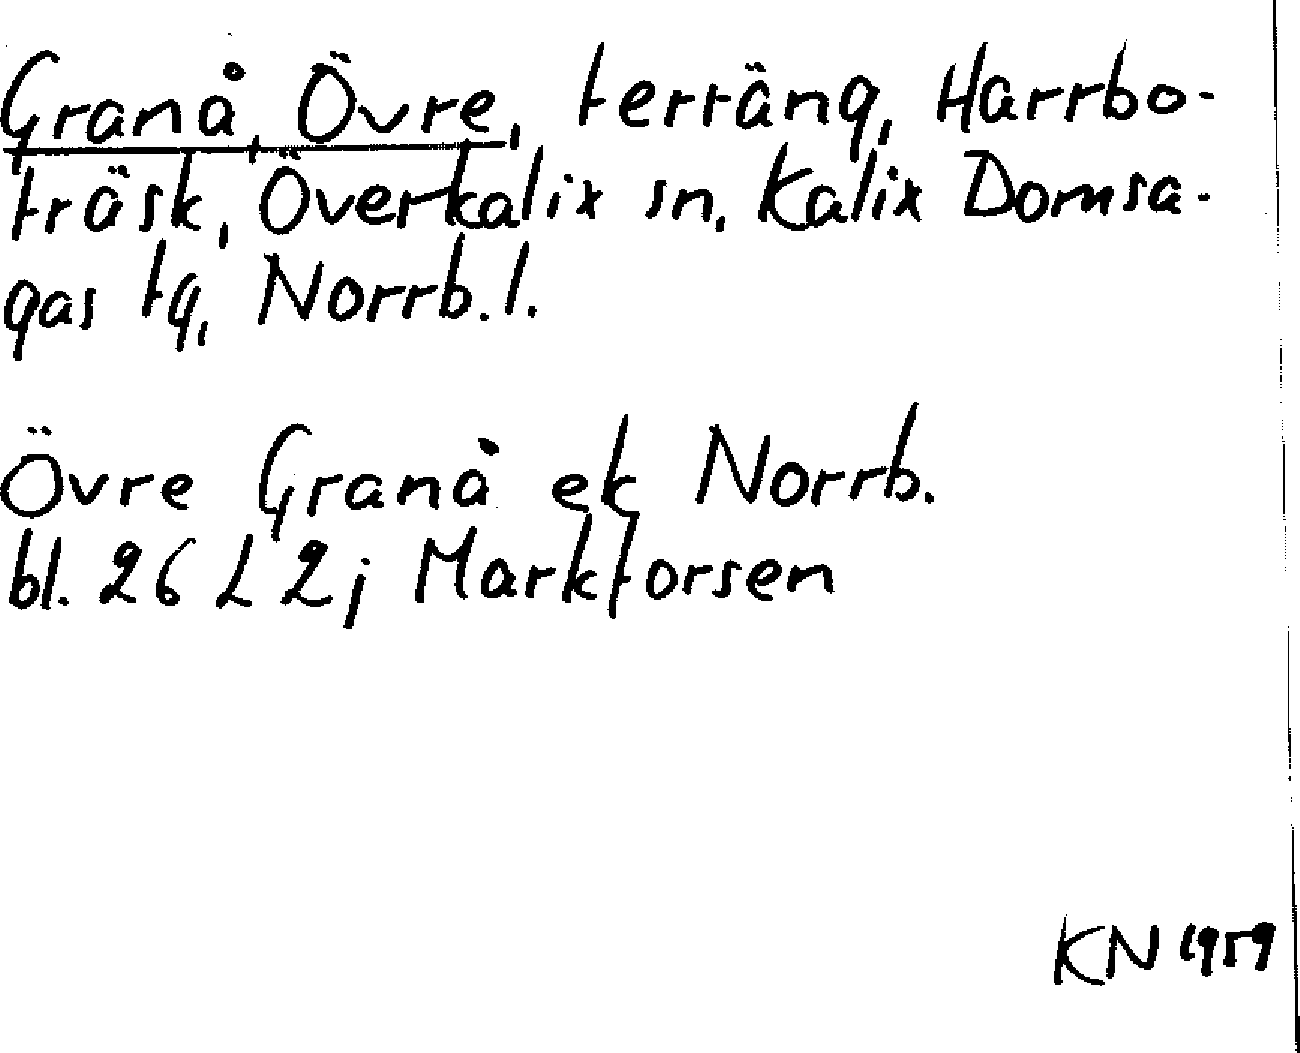 Granå, Övre, terräng, Harrbo-
träsk, Överkalix sn, Kalix Domsa-
gas tg, Norrb. l.
Övre Granå ek Norrb.
bl. 26 L 2j Markforsen
KN 1959